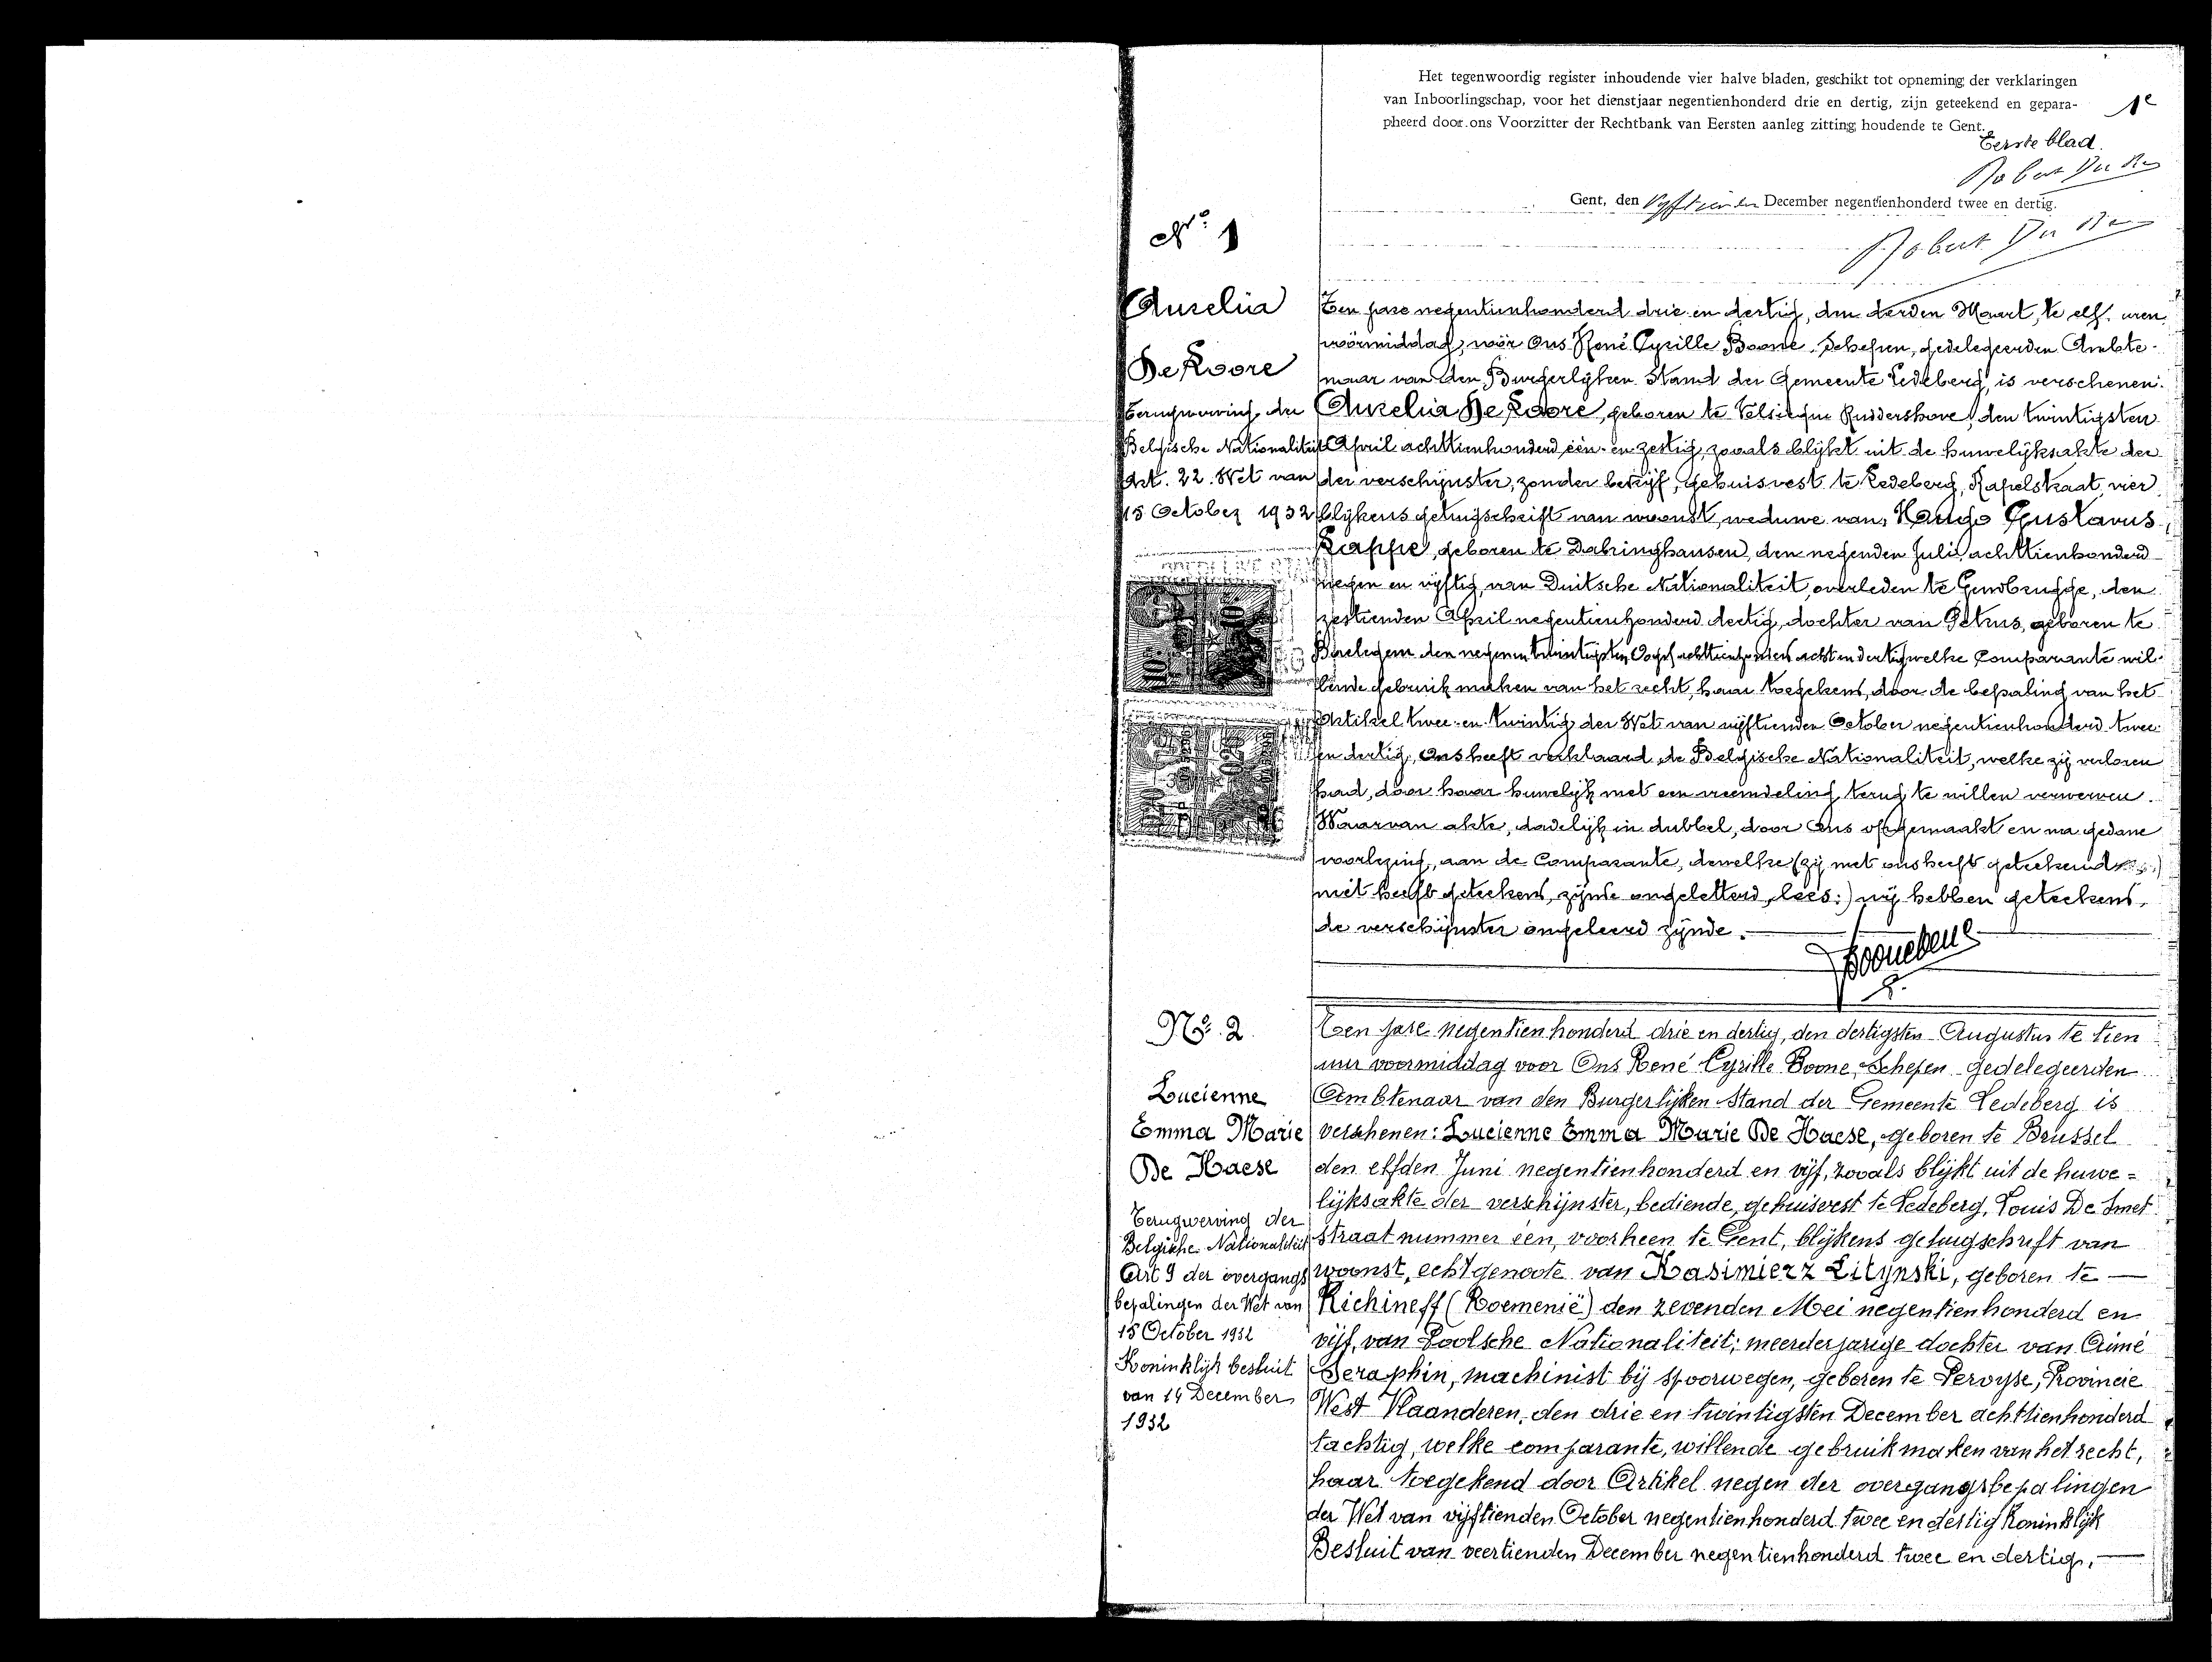 Het tegenwoordig register inhoudende vier halve bladen, geschikt tot opneming der verklaringen
van Inboorlingschap, voor het dienstjaar negentienhonderd drie en dertig, zijn geteekend en gepara-
pheerd door ons Voorzitter der Rechtbank van Eersten aanleg zitting houdende te Gent.
1e
Eerste blad.
Gent, den vyftienden December negentienhonderd twee en dertig.
No. 1
Aurelia
De Roore
Terugwerving der
Belgische Nationaliteit
Art. 22. Wet van
15 October 1932
Ten jare negentienhonderd drie en dertig, den derden Maart, te elf uren
voormiddag, voor Ons René Cyrille Boone, Schepen, gedelegeerden Ambte-
naar van den Burgerlyken Stand der Gemeente Ledeberg, is verschenen:
Aurelia De Roore, geboren te Velsique Ruddershove, den twintigsten
April achttienhonderd één en zestig, zooals blijkt uit de huwelijksakte der
der verschijnster, zonder bedrijf, gehuisvest te Ledeberg, Kapelstraat, vier
blijkens getuigschrift van woonst, weduwe van, Hugo Gustavus
Kappe, geboren te Dabringhausen, den negenden Juli achttienhonderd
negen en vijftig, van Duitsche Nationaliteit, overleden te Gendbrugge, den
zestienden April negentienhonderd dertig, dochter van Petrus, geboren te
den negen en twintigsten achttienhonderd acht en dertig welke Comparante wil-
lende gebruik maken van het recht, haar toegekend, door de bepaling van het
Artikel twee en twintig der Wet van vijftienden October negentienhonderd twee
en dertig, Ons heeft verklaard de Belgische Nationaliteit, welke zij verloren
had, door haar huwelijk met een vreemdeling terug te willen verwerven.
Waarvan akte, dadelijk in dubbel, door Ons opgemaakt en na gedane
voorlezing, aan de Comparante, dewelke (zij met ons heeft geteekend
niet heeft geteekend, zijnde ongeletterd, lees:) wij hebben geteekend,
de verschijnster ongeleerd zijnde.
No. 2
Lucienne
Emma Marie
De Haese
Terugwerving der
Belgische Nationaliteit
Art 9 der overgangs
bepalingen der Wet van
15 October 1932
Koninklijk besluit
van 14 December
1932
Ten jare negentienhonderd drie en dertig, den dertigsten Augustus te tien
uur voormiddag voor Ons René Cyrille Boone, Schepen gedelegeerden
Ambtenaar van den Burgerlijken Stand der Gemeente Ledeberg is
verschenen: Lucienne Emma Marie De Haese, geboren te Brussel
den elfden Juni negentienhonderd en vijf, zooals blijkt uit de huwe=
lijksakte der verschijnster, bediende, gehuisvest te Ledeberg, Louis De Smet
straat nummer één, voorheen te Gent, blijkens getuigschrift van
woonst, echtgenoote van Kasimierz Litynski, geboren te —
Kichineff (Roemenië) den zevenden Mei negentienhonderd en
vijf, van Poolsche Nationaliteit; meerderjarige dochter van Aimé
Seraphin, machinist bij spoorwegen, geboren te Pervyse, Provincie
West Vlaanderen, den drie en twintigsten December achttienhonderd
tachtig, welke comparante, willende gebruik maken van het recht,
haar toegekend door Artikel negen der overgangsbepalingen
der Wet van vijftienden October negentienhonderd twee en dertig Koninklijk
Besluit van veertienden December negentienhonderd twee en dertig, —